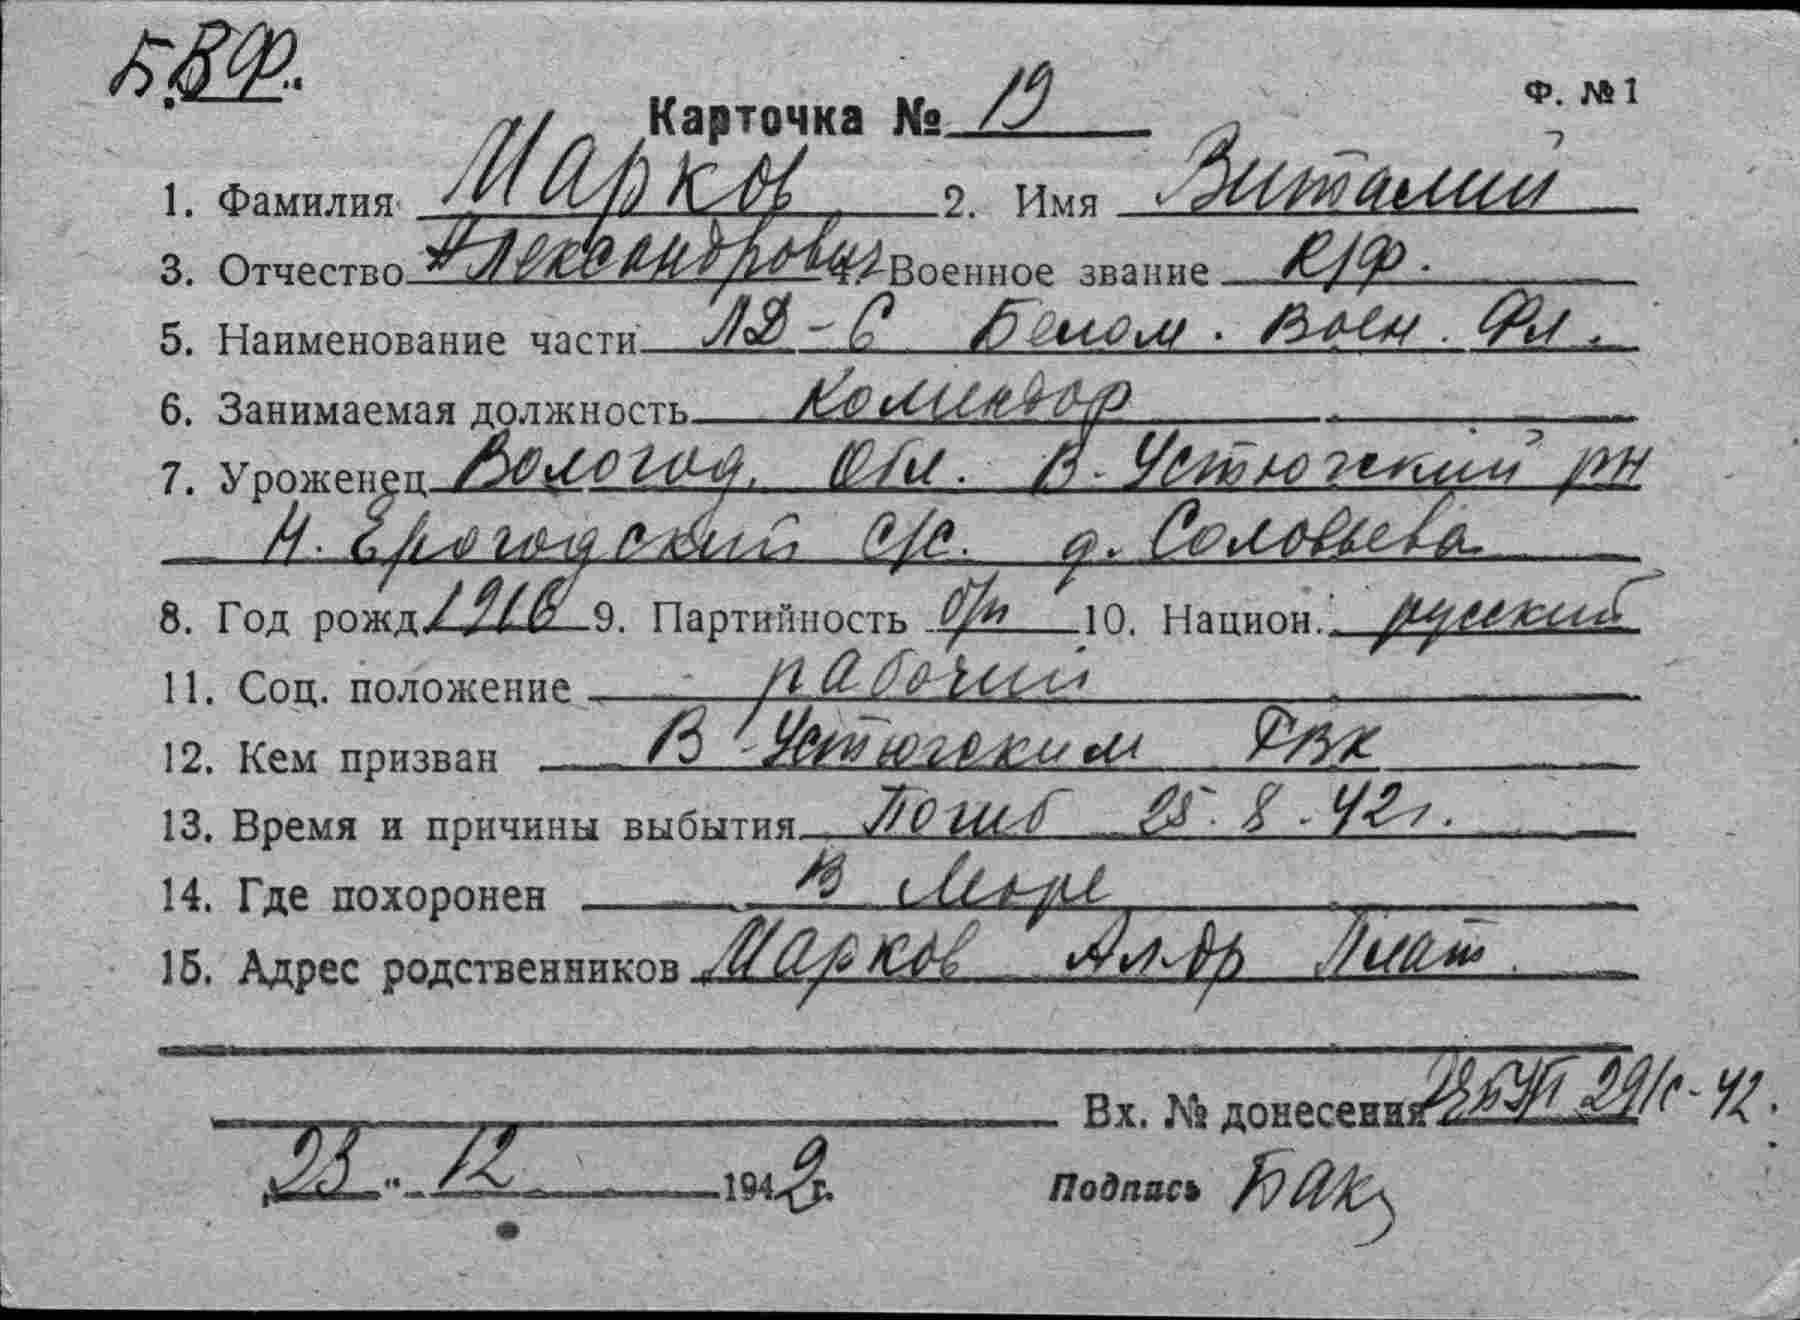 Б.В.Ф.
Ф. №1
Карточка № 19
1. Фамилия Марков 2. Имя Виталий
3. Отчество Александрович 4. Военное звание к/ф.
5. Наименование части ЛД-6 Белом. Воен. Фл.
6. Занимаемая должность Комендор
7. Уроженец Вологод. Обл. В-Устюгский рн
Н. Ерогодский с/с. д. Соловьева
8. Год рожд. 1916 9. Партийность б/п 10. Национ. русский
11. Соц. положение рабочий
12. Кем призван В-Устюгским РВК
13. Время и причины выбытия Погиб 25.8.42г.
14. Где похоронен В Море
15. Адрес родственников Марков Ал-др Плат.
Вх. № донесения 29/ -42.
„23" 12 1942г. Подпись Бак